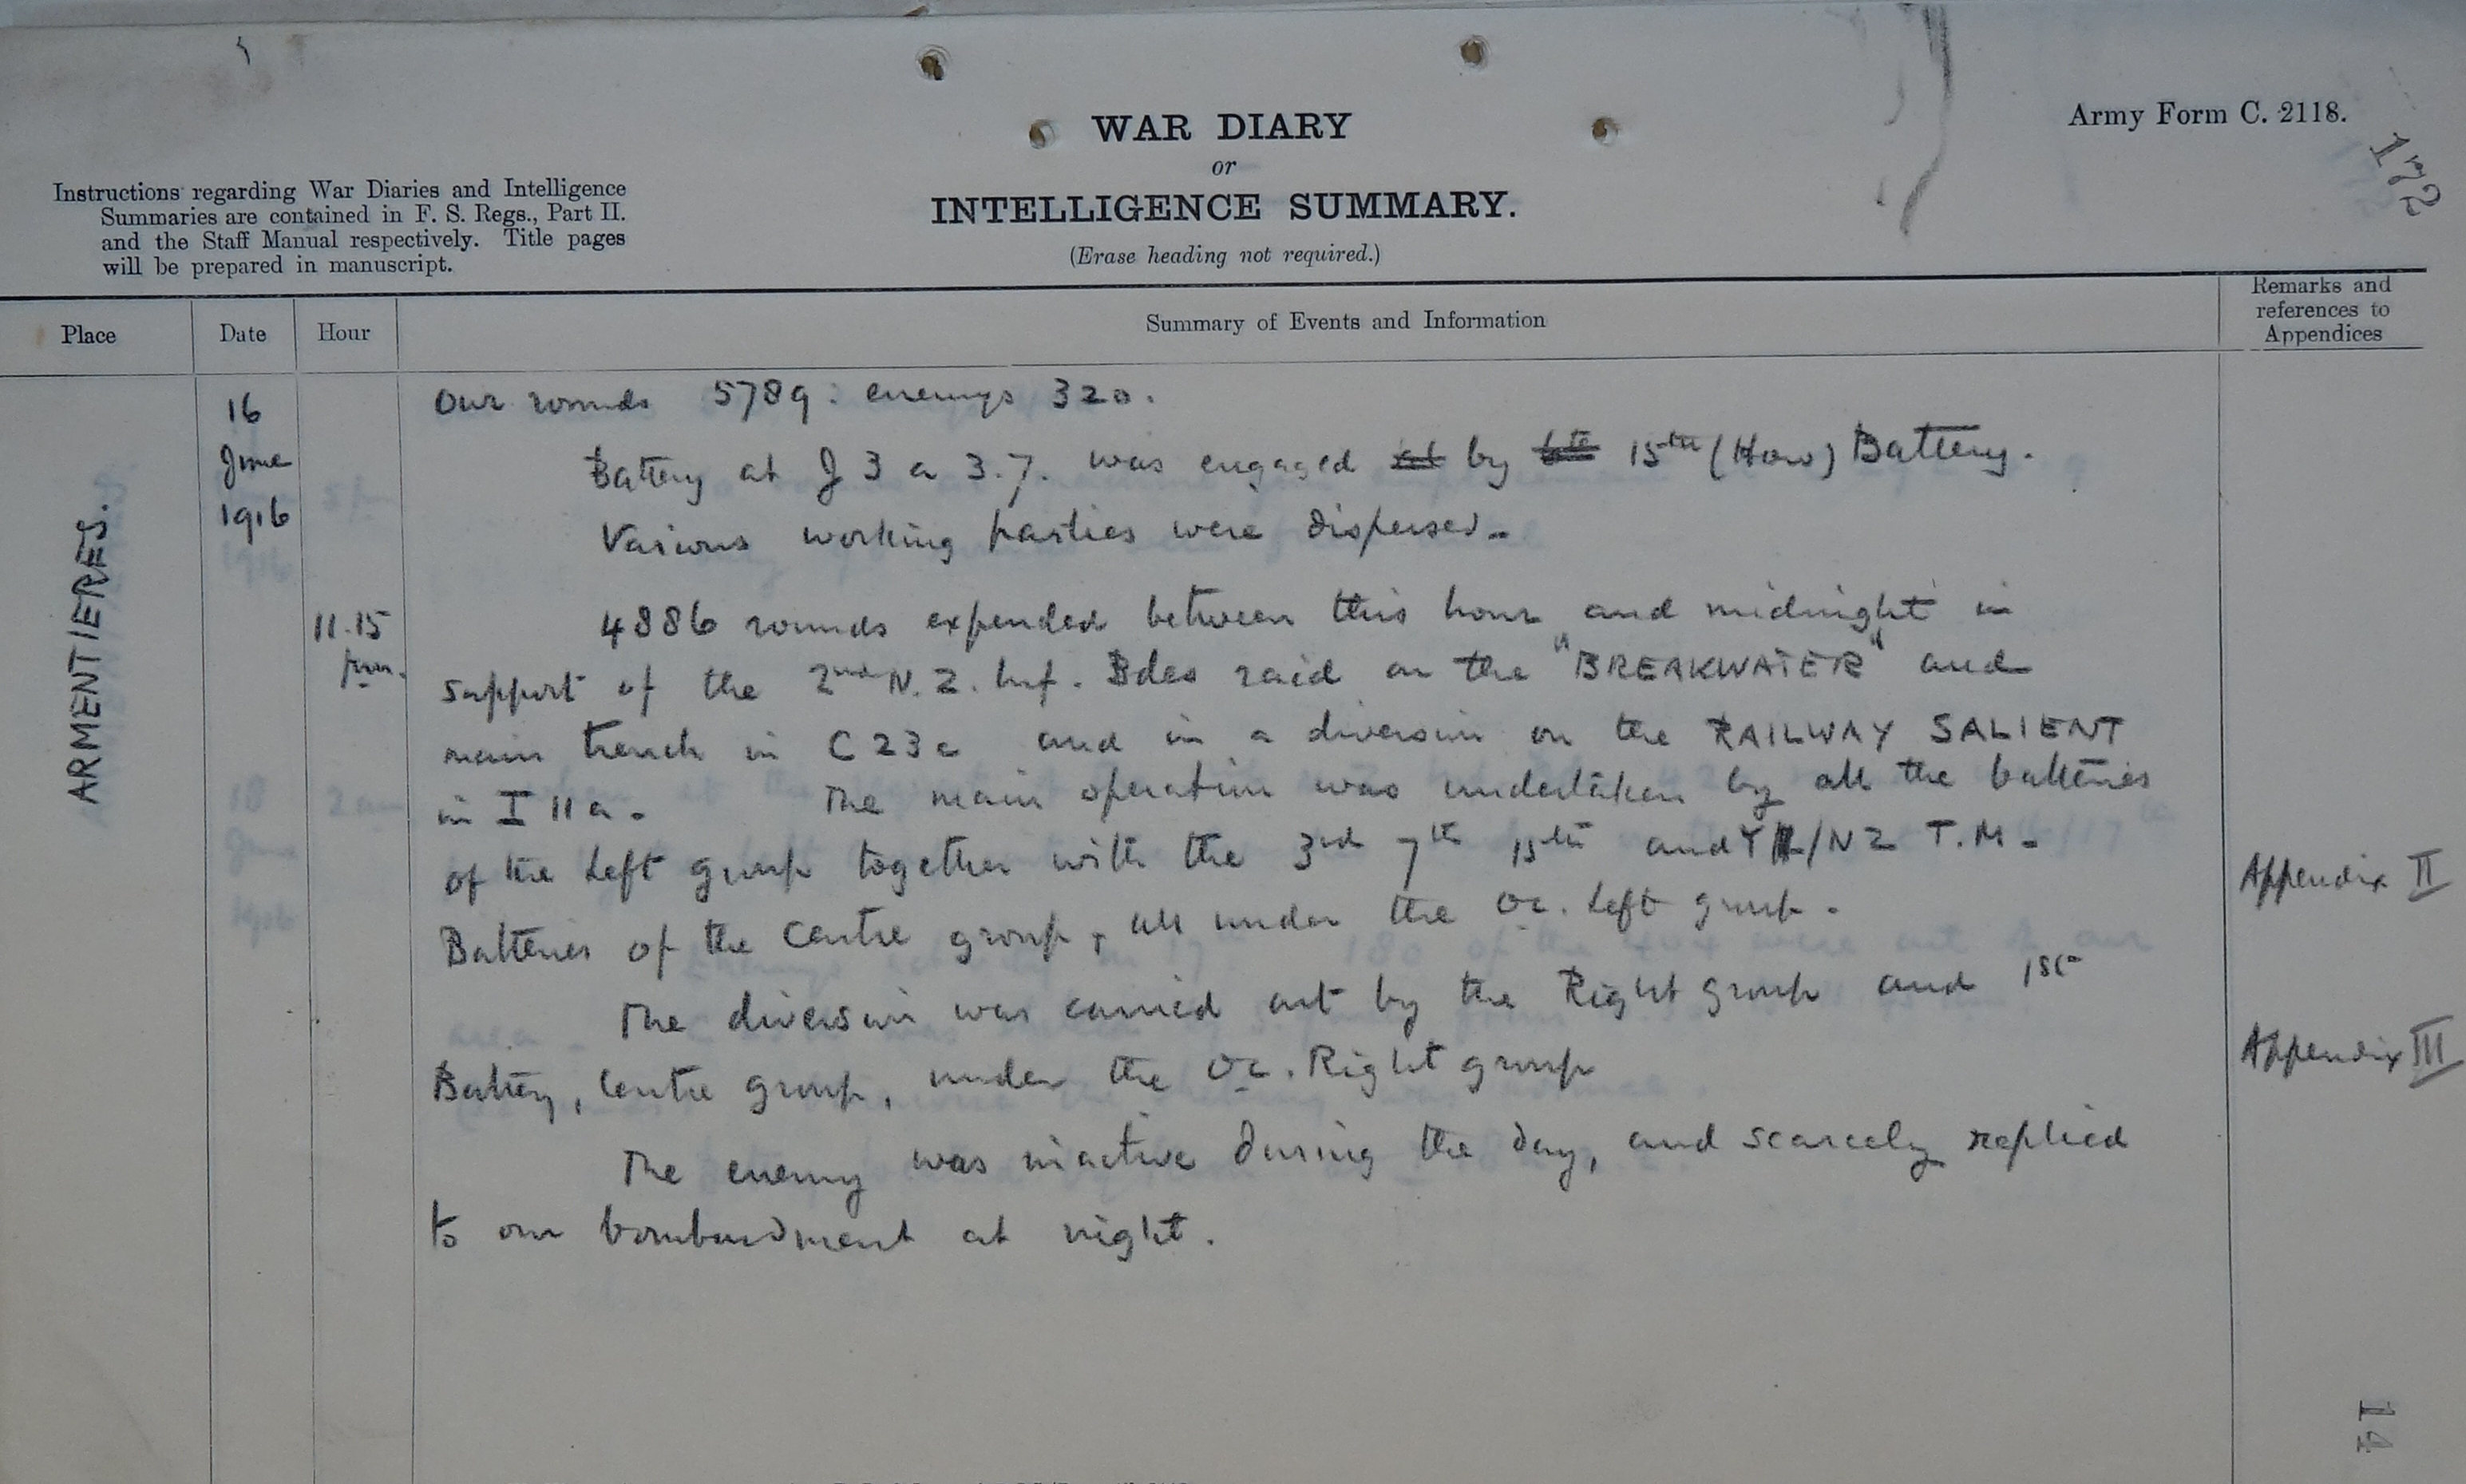 Army Form C. 2118.
172
WAR DIARY
or
INTELLIGENCE SUMMARY.
(Erase heading not required.)
Instructions regarding War Diaries and Intelligence
Summaries are contained in F. S. Regs., Part II.
and the Staff Manual respectively. Title pages
will be prepared in manuscript.
Place
Date
Hour
Summary of Events and Information
Remarks and
references to
Appendices
ARMENTIERES.
16
June
1916
Our rounds 5789: enemys 320.
Battery at J 3 a 3.7. was engaged at by 15th (How) Battery.
Various working parties were dispersed.
11.15
pm.
4886 rounds expended between this hour and midnight in
support of the 2nd N.Z. Inf. Bdes raid on the "BREAKWATER" and
main trench in C 23 c and in a diversion on the RAILWAY SALIENT
in I 11 a. The main operation was undertaken by all the batteries
of the Left group together with the 3rd 7th 15th and Y /NZ T.M.
Batteries of the Centre group, all under the Oc. Left group.
Appendix II
The diversion was carried out by the Right group and 1st
Battery, Centre group, under the Oc. Right group
Appendix III
The enemy was inactive during the day, and scarcely replied
to our bombardment at night.
14